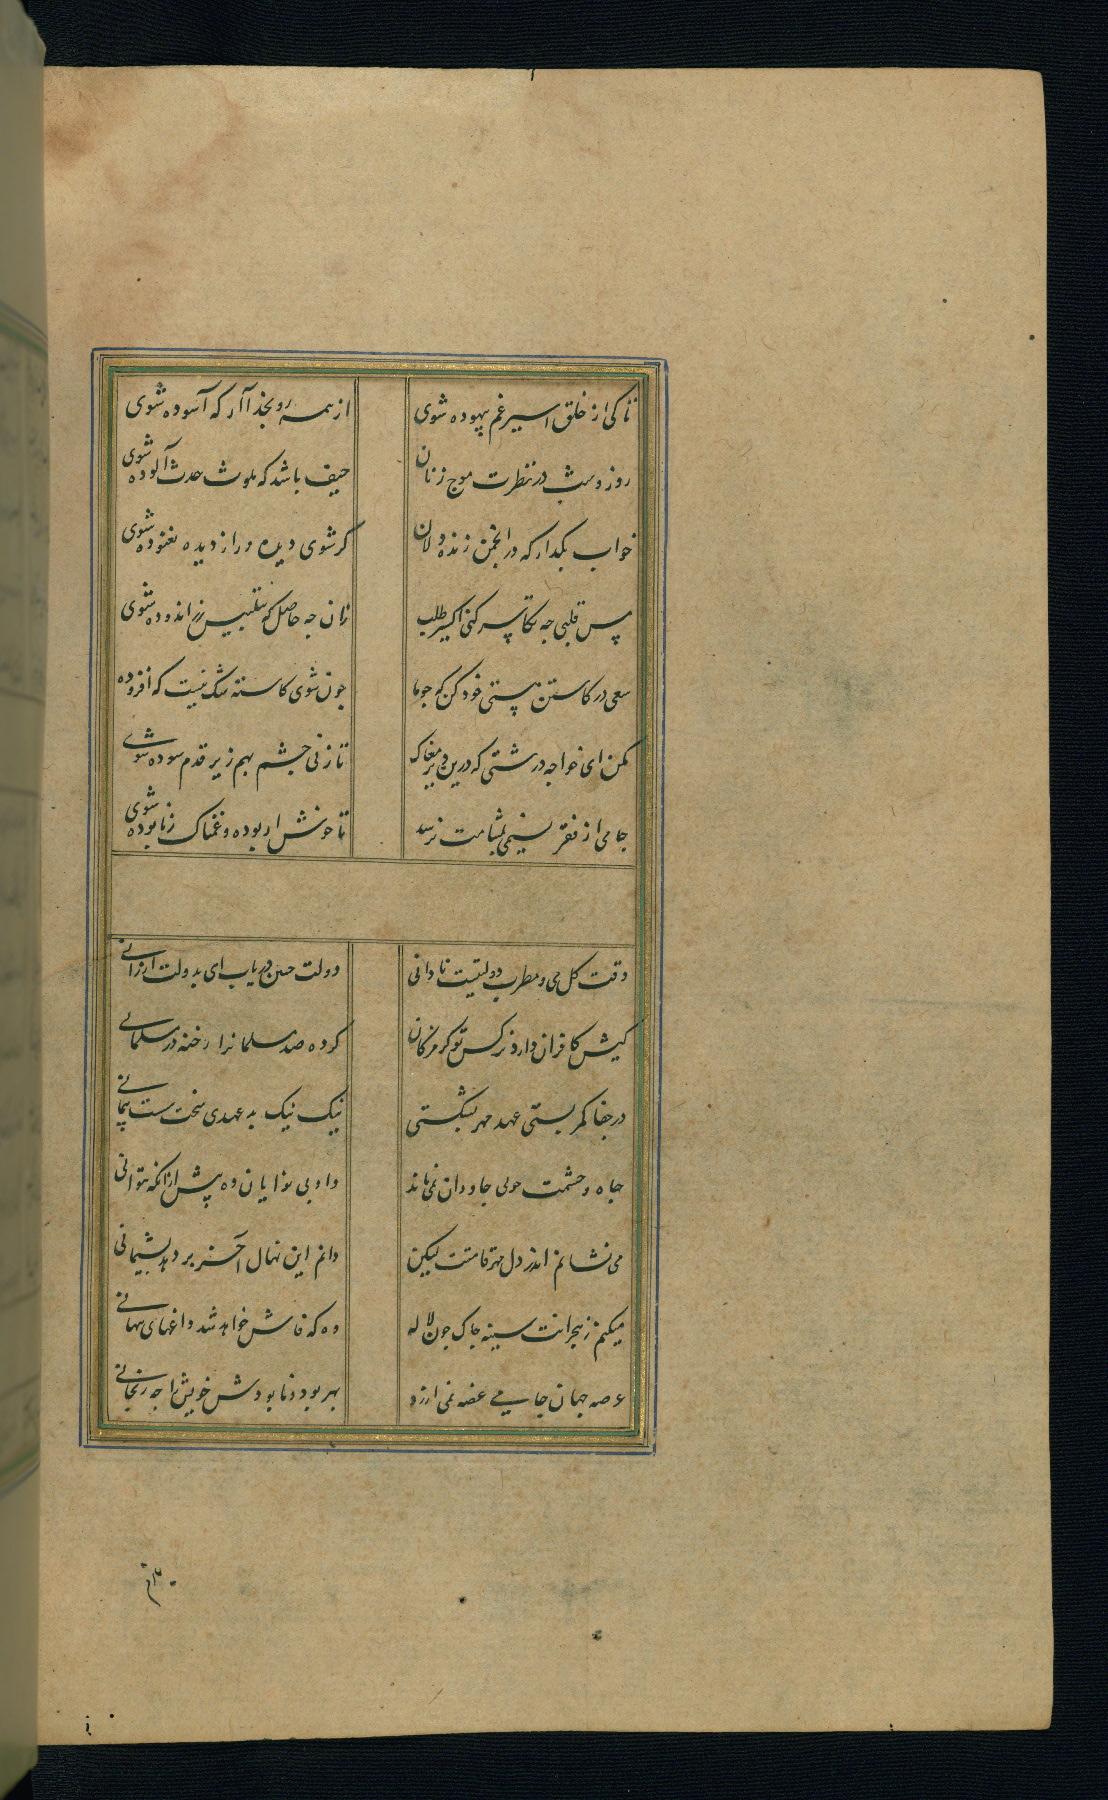 تا کی از خلق اسیر غم بیهوده شوی از همه رو بخدا آر که آسوده شوی
روز و شب در نظرت موج زنان حیف باشد که ملوث حدث آلوده شوی
خواب بگذار که در انجمن زنده دلان کر شوی دیده ور از دیده نغنوده شوی
پس قلبی چه تکاپسر کنی اکسیر طلب زان چه حاصل که بتلبیس زر اندوده شوی
سعی در کاستن هستی خود کن که چو ما چون شوی کاسته شک نیست که افزوده
مکن ای خواجه درشتی که درین دیر مغاک تا زنی چشم بهم زیر قدم سوده شوی
جامی از فقر نسیمی بمشامت نرسد تا خوش از بوده و غمناک ز نابوده شوی
وقت کل می و مطرب دولتیست تا دانی دولت چنین دریاب ای بدولت ارزانی
کیش کافران دارد نرکس تو کز مژکان کرده صد مسلمانرا رخنه در مسلمانی
در جفا کمر بستی عهد مهر بشکستی نیک نیک بد عهدی سخت سست پیمانی
جاه و حشمت خوبی جاودان نمی ماند داد بی نوایان ده پیش از آنکه نتوانی
می نشانم اندر دل مهر قامتت لیکن دانم این نهال آخر بر دهد پشیمانی
میکنم ز هجرانت سینه چاک چون لاله وه که فاش خواهد شد داغهای پنهانی
عرصه جهان جامی غصه نمی ارزد بهر بود و نابودش خویش را چه رنجانی